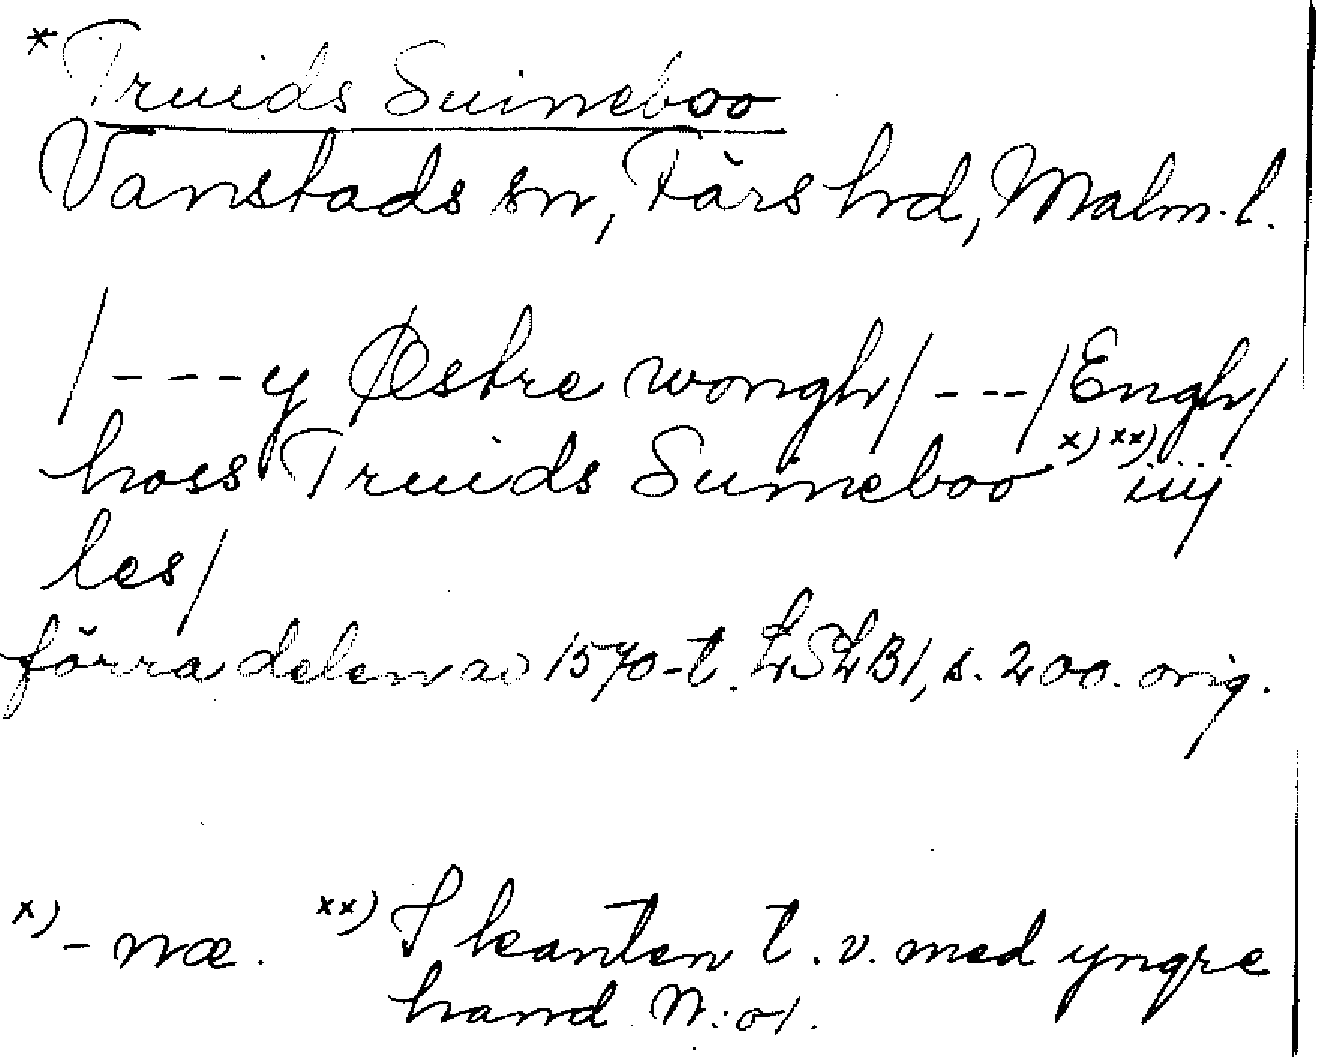 * Truids Suineboo
Vanstads sn, Färs hd, Malm. l.
/---y Østre wongh/ ---/Engh/
hoss Truids Suineboo x) xx) iiij
les/
förra delen av 1570-t. LSLB1, s. 200. orig.
x) - næ. xx) I kanten t. v. med yngre
hand N:o 1.